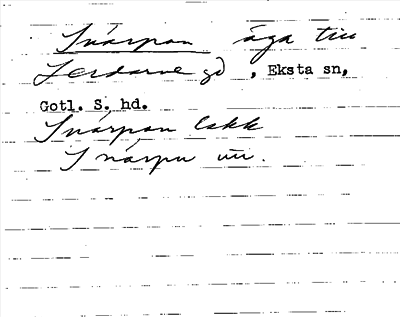 Snárpan äga till
Lerdarve gd, Eksta sn,
Gotl. S. hd.
Snárpan lakk
Snárpu